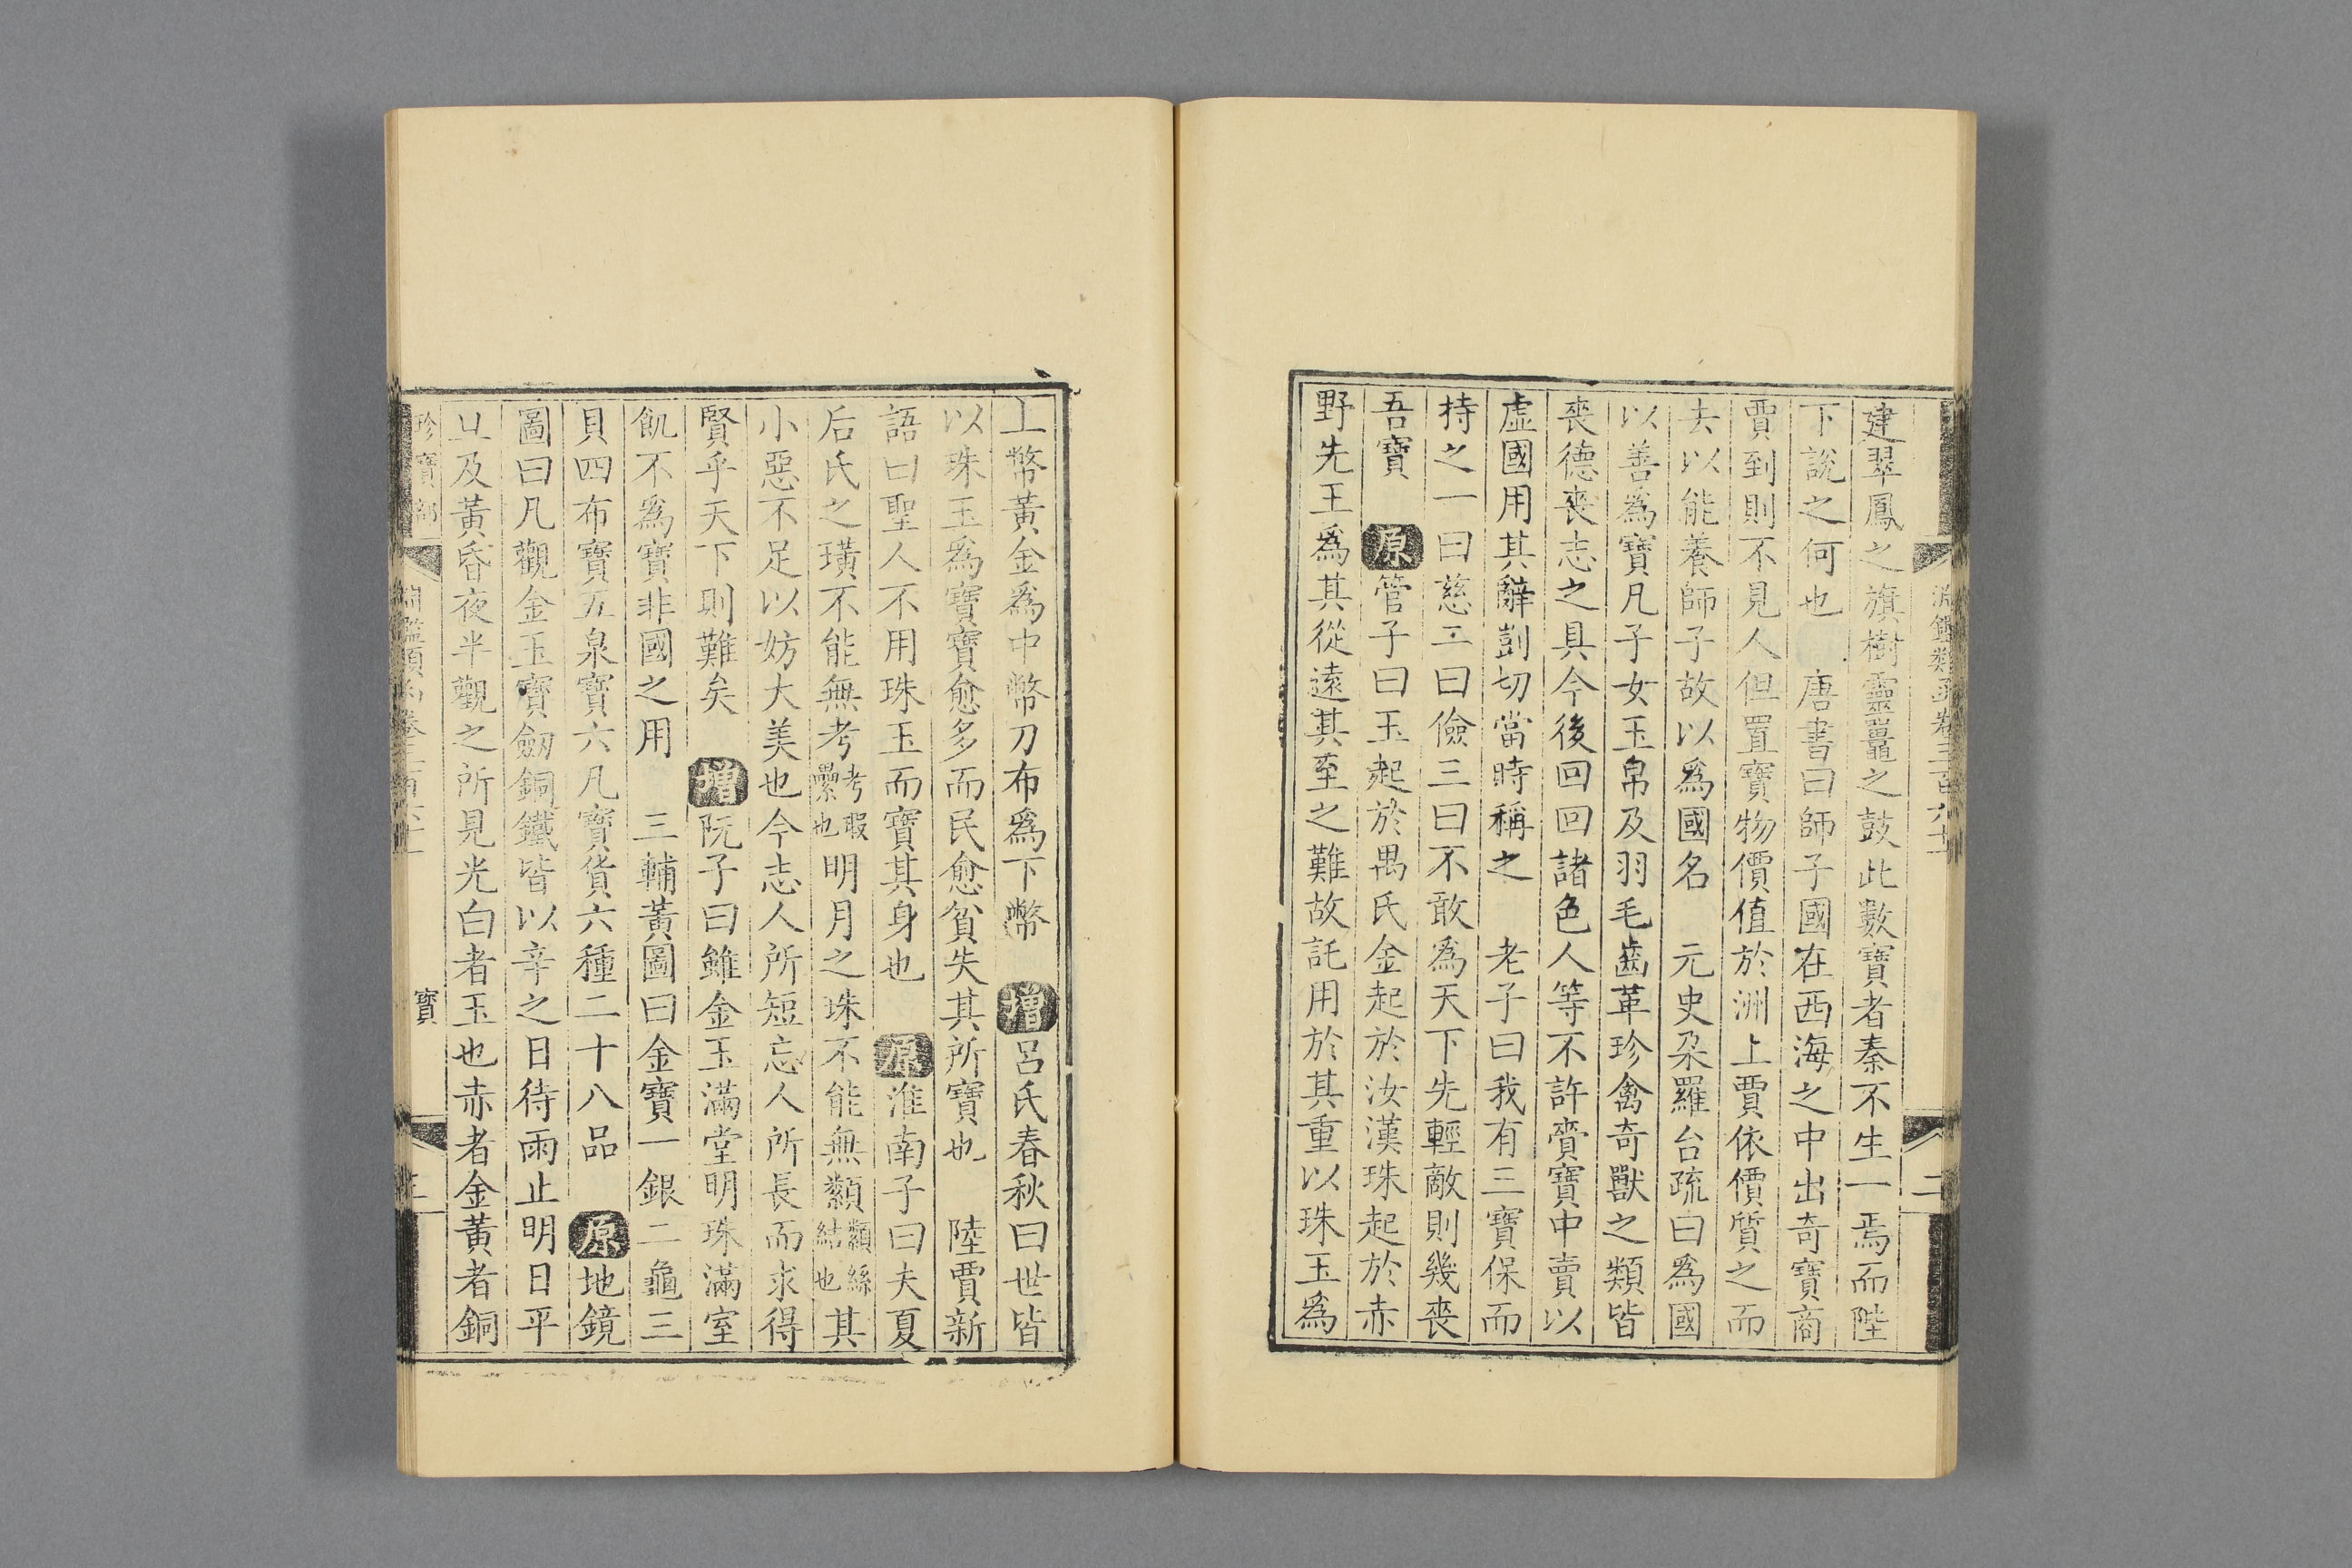 淵鑑類函卷三百六十一
二
建翠鳳之旗樹靈鼉之鼓此數寶者秦不生一焉而陛
下說之何也　唐書曰師子國在西海之中出奇寶商
賈到則不見人但置寶物價值於洲上賈依價質之而
去以能養師子故以為國名　元史朶羅台疏曰為國
以善為寶凡子女玉帛及羽毛齒革珍禽奇獸之類皆
喪德喪志之具今後回回諸色人等不許賫寶中賣以
虛國用其辭剴切當時稱之　老子曰我有三寶保而
持之一曰慈二曰儉三曰不敢為天下先輕敵則幾喪
吾寶　原管子曰玉起於禺氏金起於汝漢珠起於赤
野先王為其從遠其至之難故託用於其重以珠玉為
上幣黃金為中幣刀布為下幣　增呂氏春秋曰世皆
以珠玉為寶寶愈多而民愈貧失其所寶也　陸賈新
語曰聖人不用珠玉而寶其身也　原淮南子曰夫夏
后氏之璜不能無考考瑕釁也明月之珠不能無纇纇絲結也其
小惡不足以妨大美也今志人所短忘人所長而求得
賢乎天下則難矣　增阮子曰雖金玉滿堂明珠滿室
飢不為寶非國之用　三輔黃圖曰金寶一銀二龜三
貝四布寶五泉寶六凡寶貨六種二十八品　原地鏡
圖曰凡觀金玉寶劒銅鐵皆以辛之日待雨止明日平
旦及黃昏夜半觀之所見光白者玉也赤者金黃者銅
珍寶部
淵鑑類函卷三百六十一
寶